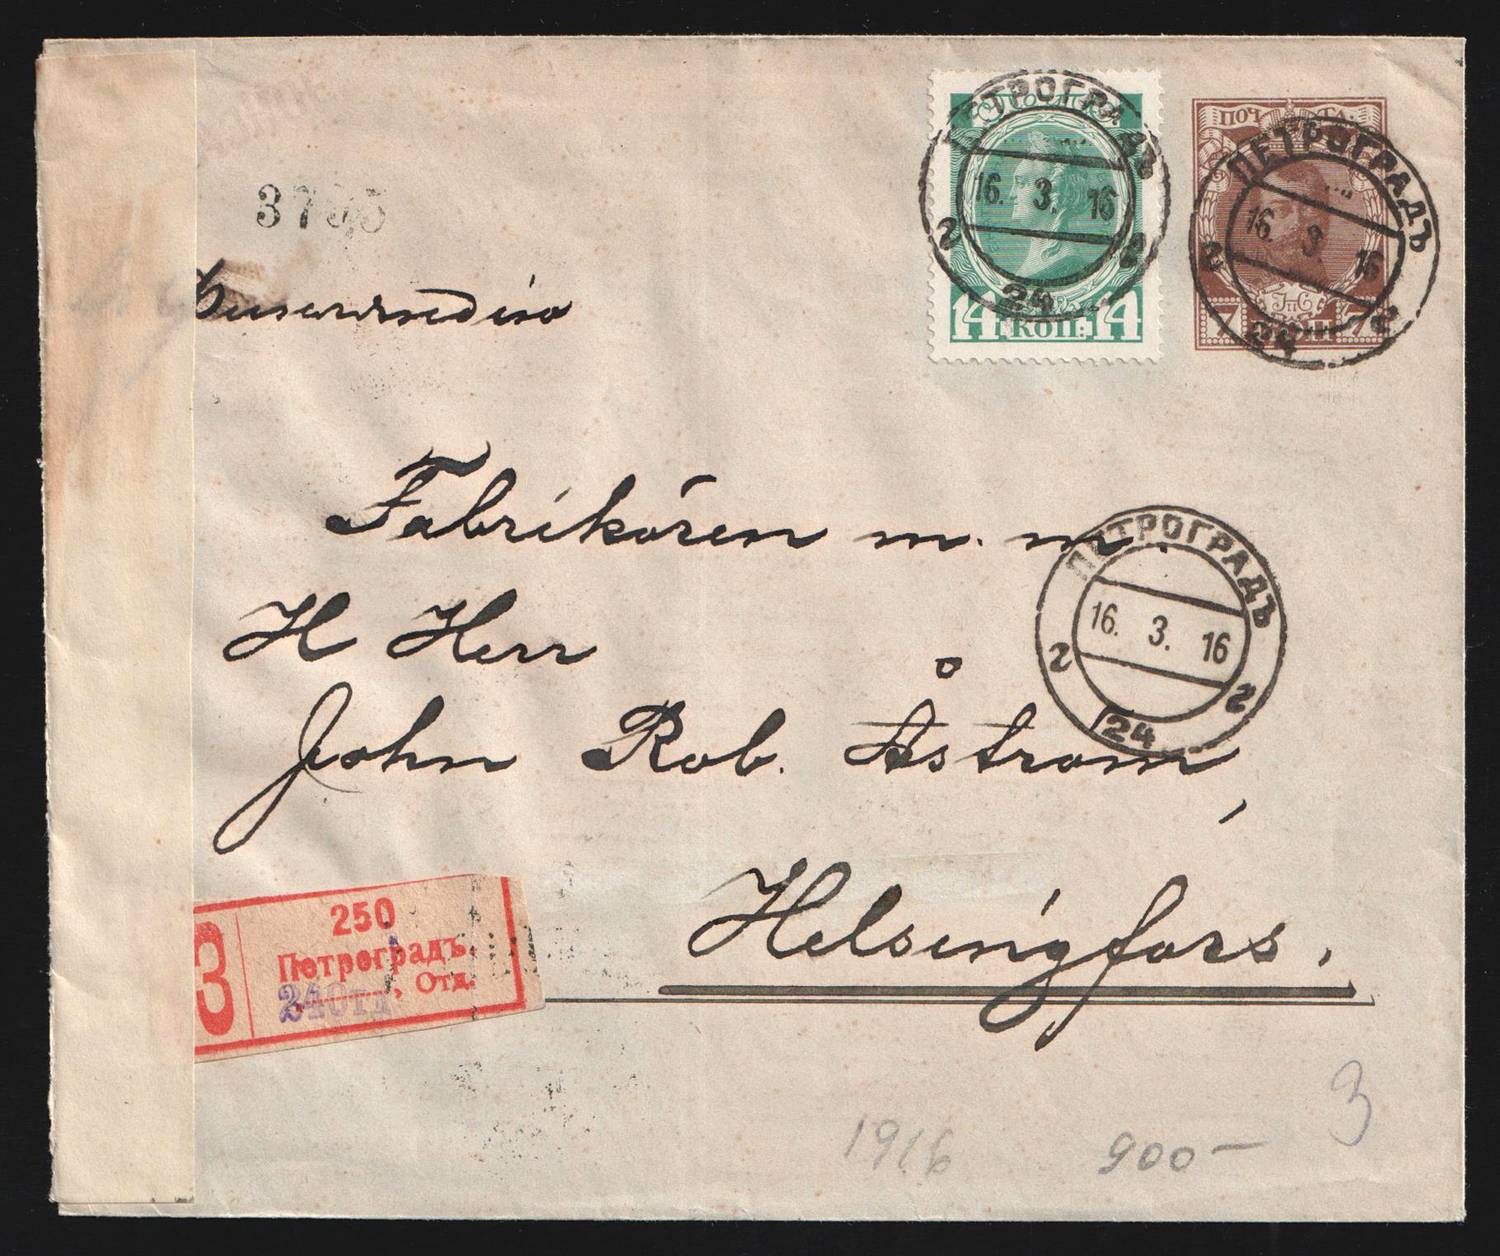 3795
Финляндiю
14 КОП. 14
ПЕТРОГРАДЪ
16. 3. 16
2 2
24
ПОЧТА.
7 КОП 7
ПЕТРОГРАДЪ
16. 3. 16
2 2
24
Fabrikören m. m.
H Herr
John Rob. Åström,
Helsingfors.
ПЕТРОГРАДЪ
16. 3. 16
2 2
24
З
250
Петроградъ.
24 Отд., Отд.
1916
900-
3